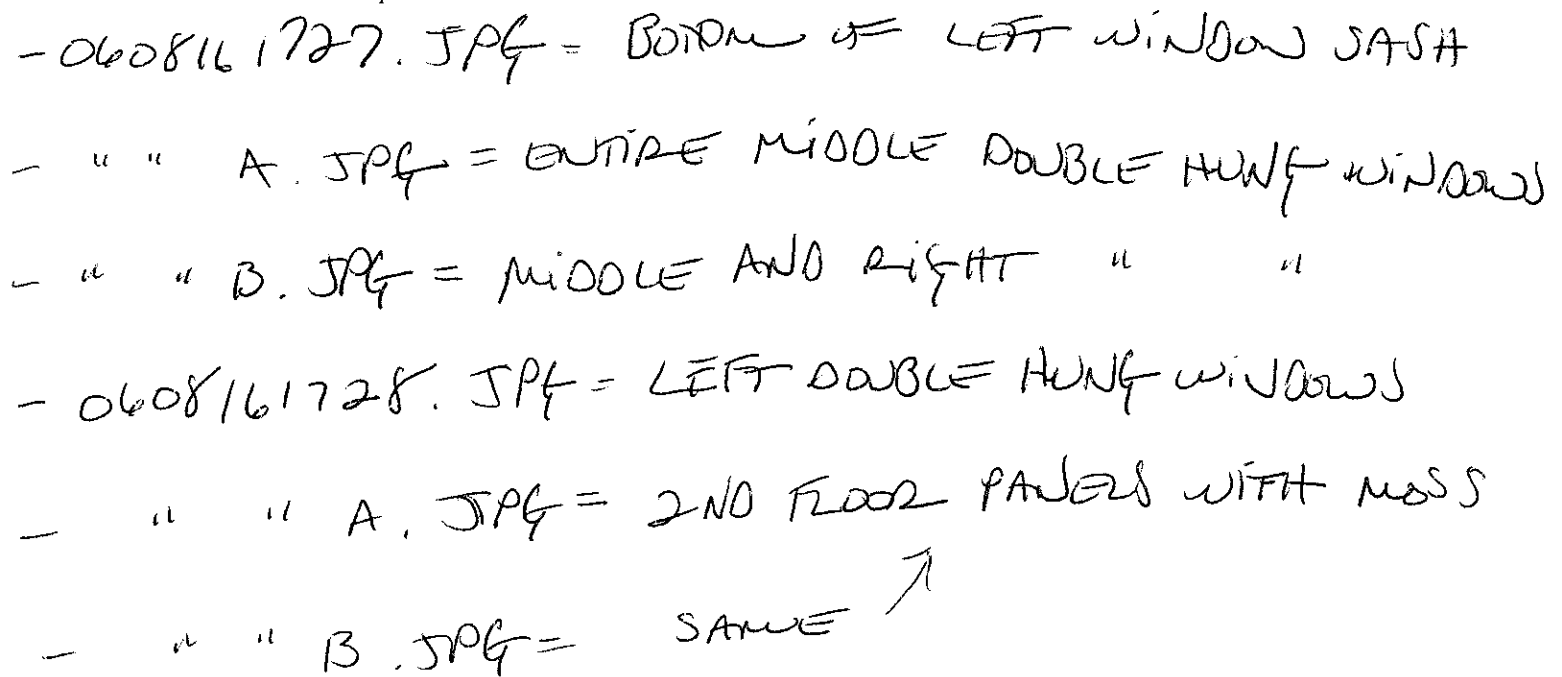 - 0608161727.JPG = BOTTOM OF LEFT WINDOW SASH
- " " A.JPG = ENTIRE MIDDLE DOUBLE HUNG WINDOWS
- " " B.JPG = MIDDLE AND RIGHT " "
- 0608161728.JPG = LEFT DOUBLE HUNG WINDOWS
- " " A.JPG = 2ND FLOOR PANELS WITH MOSS
- " " B.JPG = SAME ↗